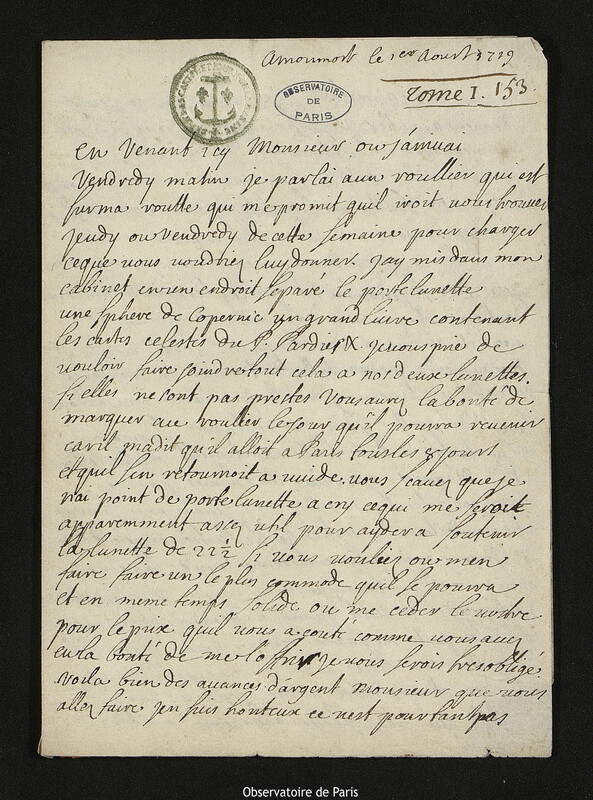 le 1er Aoust 1719
OBSERVATOIRE
DE
PARIS
Tome I. 153.
En Venant icy Monsieur ou j'arrivai
Vendredy matin je parlai a un roullier qui est
sur ma routte qui me promit quil iroit vous trouver
jeudy ou vendredy de cette semaine pour charger
ceque vous voudriez luy donner. jay mis dans mon
cabinet en un endroit separé le porte lunette
une sphere de Copernic un grand livre contenant
les cartes celestes du P. Pardies X. je vous prie de
vouloir faire joindre tout cela a nos deux lunettes.
si elles ne sont pas prestes vous aurez la bonté de
marquer au roullier le jour qu'il pourra revenir
car il m'a dit qu'il alloit a Paris tous les 8 jours
et quil s'en retournoit a vuide. vous scavez que je
n'ai point de porte lunette a cry ce qui me seroit
apparemment assez util pour ayder a soutenir
la lunette de 22½ si vous vouliez ou m'en
faire faire un le plus commode quil se pourra
et en meme temps solide ou me ceder le vostre
pour le prix quil vous a couté comme vous avez
eu la bonté de me l'offrir je vous serois tres obligé.
voila bien des avances d'argent monsieur que vous
allez faire j'en suis honteux ce n'est pourtant pas
Observatoire de Paris